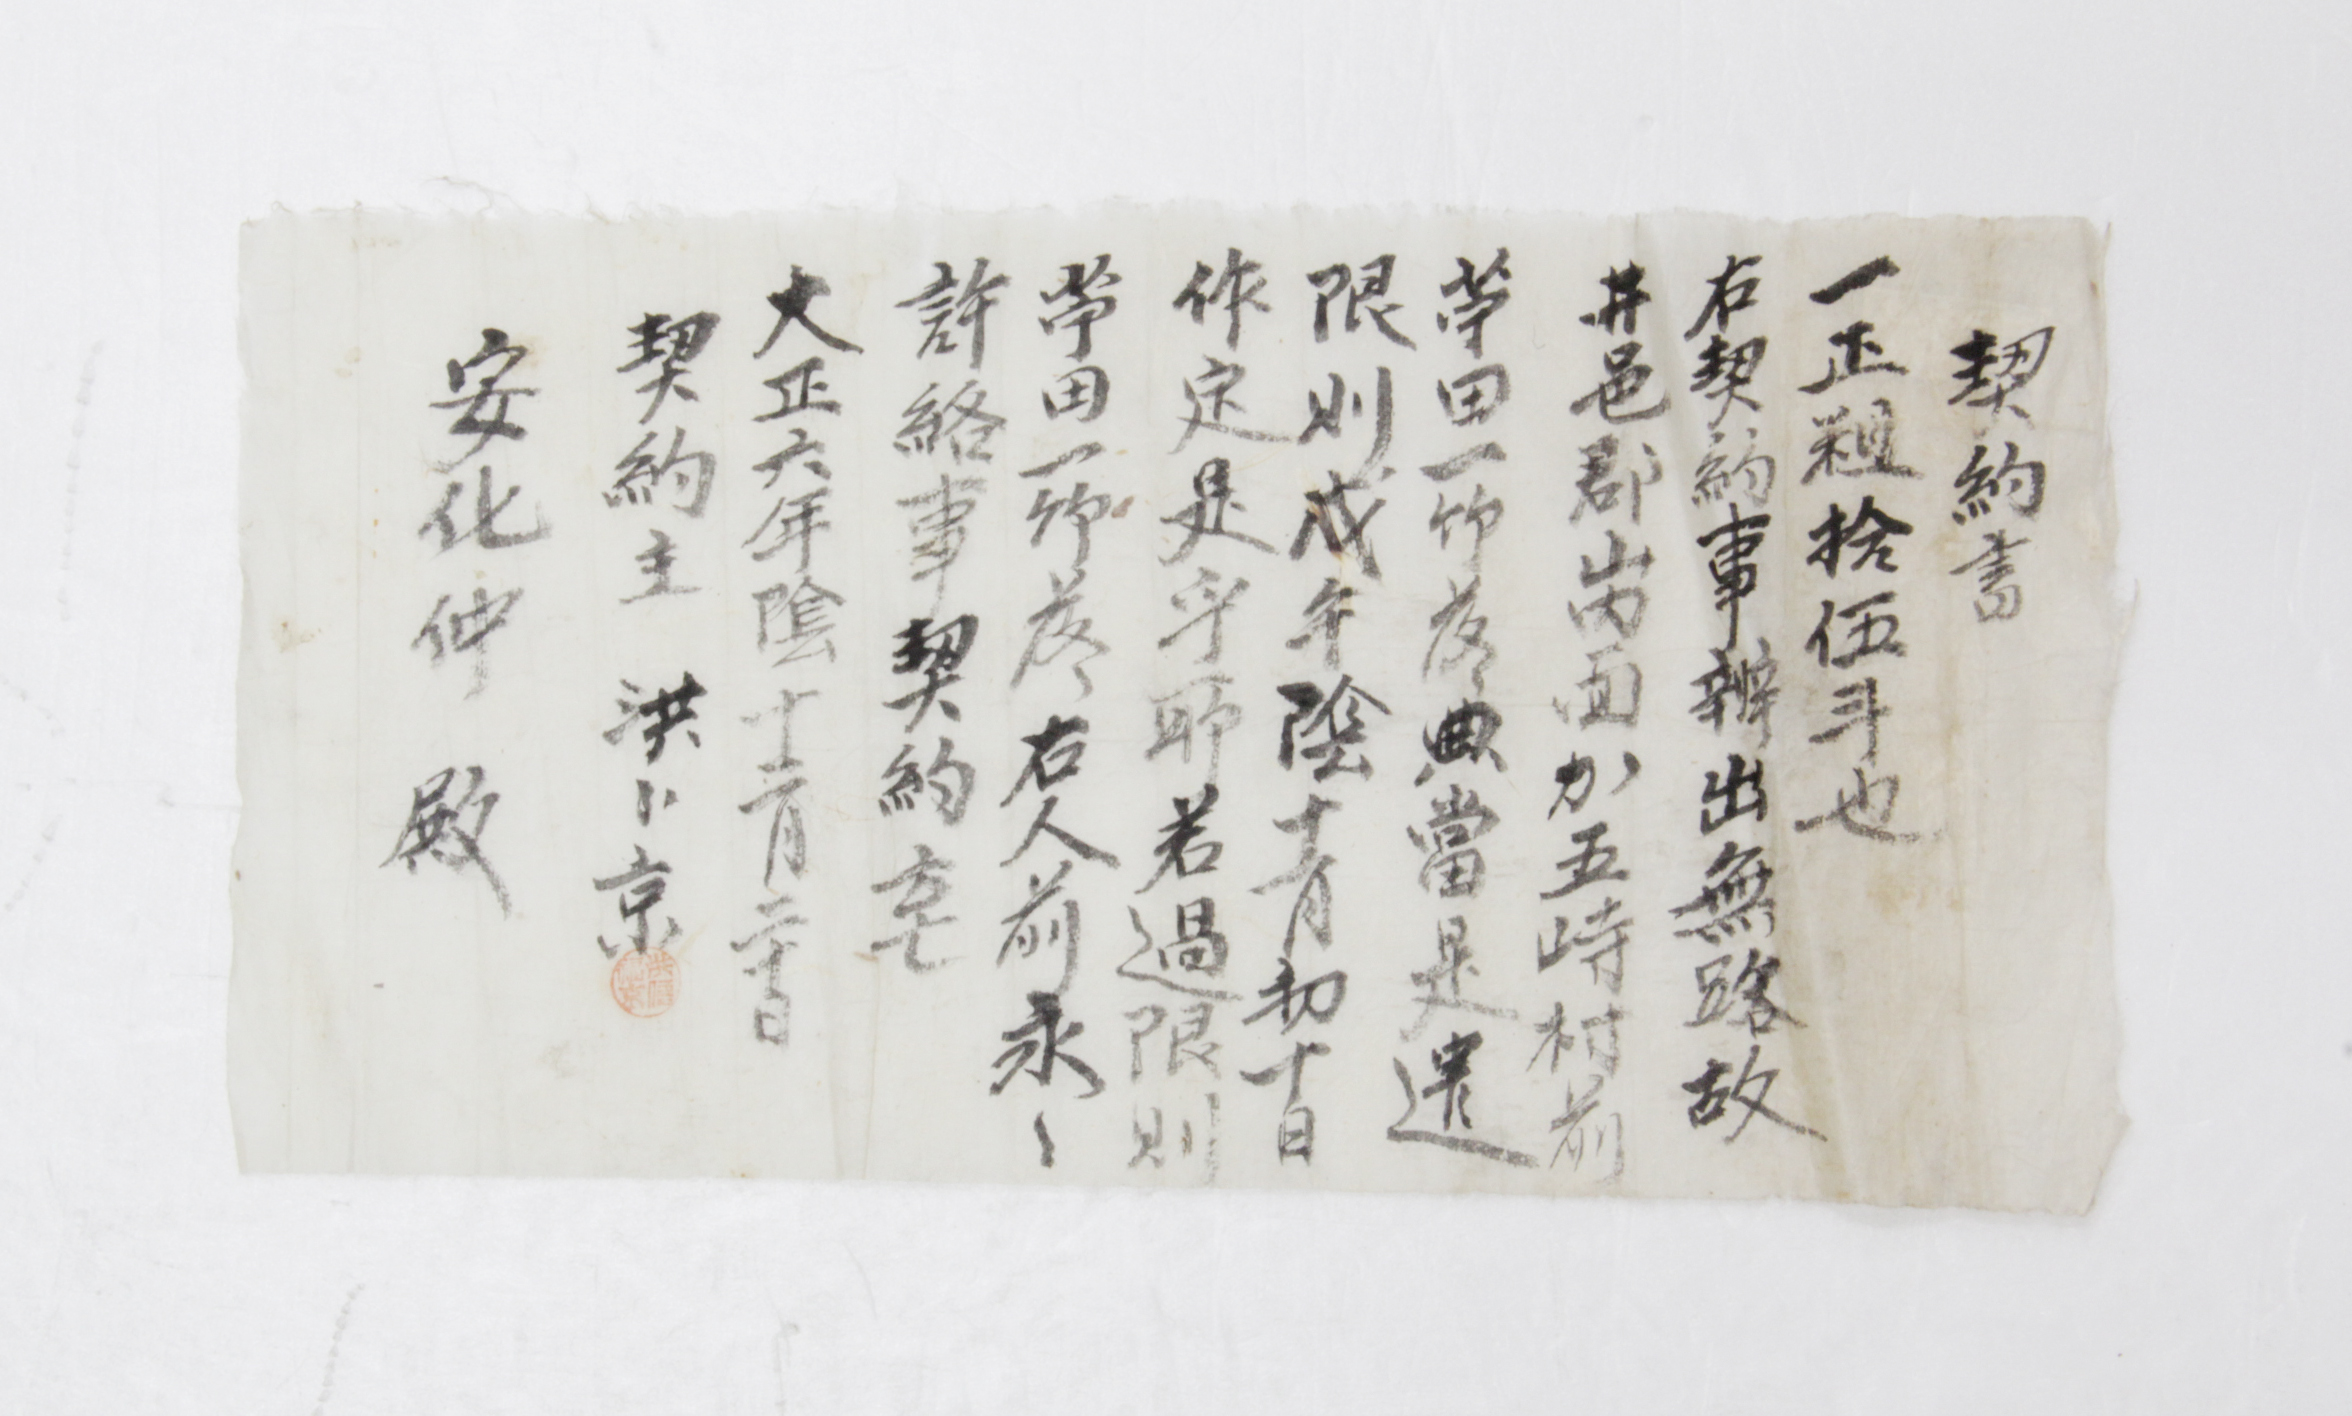 契約書
一正租拾伍斗也
右契約事辦出無路故
井邑郡山內面か五峙村前
畓一節落典當是遣
限則戊午陰十月初十日
作定是乎耶若過限則
畓一節落右人前永々
許給事契約
大正六年陰十二月二十日
契約主 洪卜京
安化仲 殿